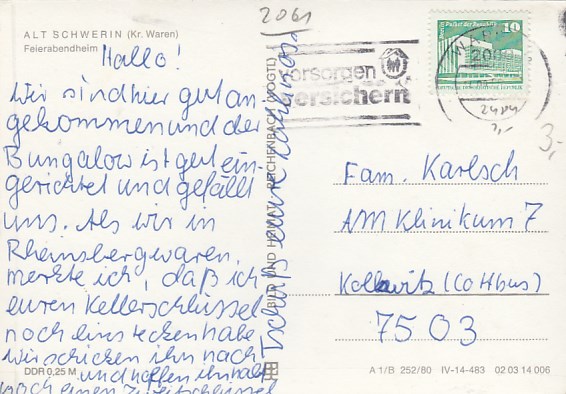 ALT SCHWERIN (Kr. Waren)
Feierabendheim
2061
Hallo!
Wir sind hier gut an
gekommen und der
Bungalow ist gut ein-
gerichtet und gefällt
uns. Als wir in
Rheinsberg waren,
merkte ich, daß ich
euren Kellerschlüssel
noch einstecken habe
wir schicken ihn nach
und hoffen ihr habt
noch einen Zweitschlüssel
Tschüß
BILD UND HEIMAT REICHENBACH (VOGTL)
DDR 0,25 M
10
DEUTSCHE DEMOKRATISCHE REPUBLIK
WAREN
vorsorgen
versichern
3,-
Fam. Karlsch
AM Klinikum 7
Kolkwitz (Cottbus)
7503
A 1/B 252/80 IV-14-483 02 03 14 006